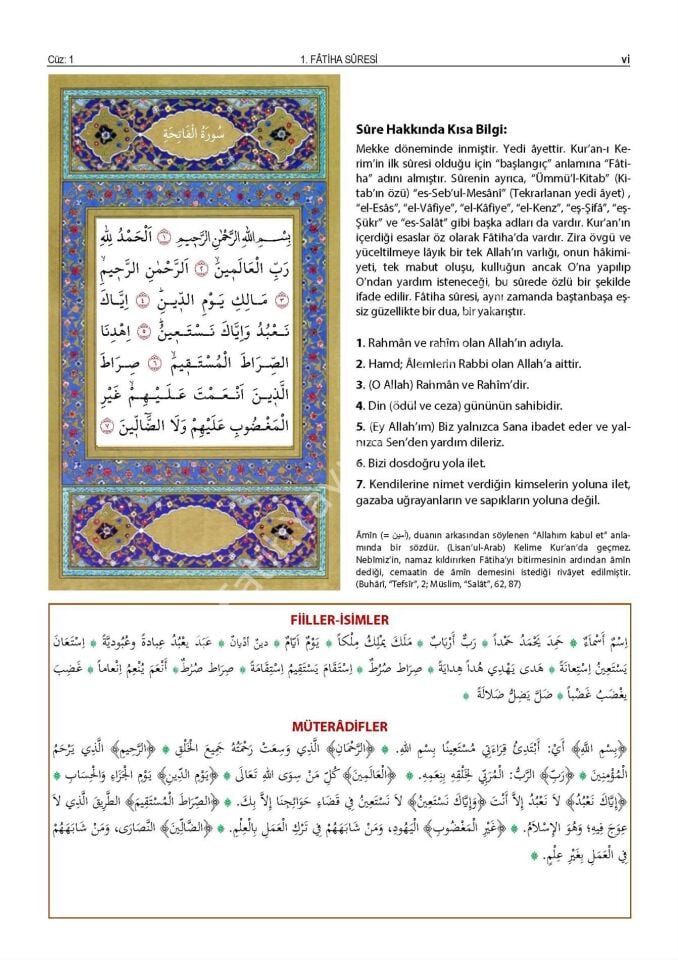 Cüz: 1
1. FÂTİHA SÛRESİ
vi
سُورَةُ الْفَاتِحَةِ
بِسْمِ اللّٰهِ الرَّحْمٰنِ الرَّح۪يمِ ﴿١﴾ اَلْحَمْدُ لِلّٰهِ
رَبِّ الْعَالَم۪ينَۙ ﴿٢﴾ اَلرَّحْمٰنِ الرَّح۪يمِۙ
﴿٣﴾ مَالِكِ يَوْمِ الدّ۪ينِۜ ﴿٤﴾ اِيَّاكَ
نَعْبُدُ وَاِيَّاكَ نَسْتَع۪ينُۜ ﴿٥﴾ اِهْدِنَا
الصِّرَاطَ الْمُسْتَق۪يمَۙ ﴿٦﴾ صِرَاطَ
الَّذ۪ينَ اَنْعَمْتَ عَلَيْهِمْۙ غَيْرِ
الْمَغْضُوبِ عَلَيْهِمْ وَلَا الضَّٓالّ۪ينَ ﴿٧﴾
Sûre Hakkında Kısa Bilgi:
Mekke döneminde inmiştir. Yedi âyettir. Kur’an-ı Ke-
rim’in ilk sûresi olduğu için “başlangıç” anlamına “Fâti-
ha” adını almıştır. Sûrenin ayrıca, “Ümmü’l-Kitab” (Ki-
tab’ın özü) “es-Seb’ul-Mesâni” (Tekrarlanan yedi âyet) ,
“el-Esâs”, “el-Vâfiye”, “el-Kâfiye”, “el-Kenz”, “eş-Şifâ”, “eş-
Şükr” ve “es-Salât” gibi başka adları da vardır. Kur’an’ın
içerdiği esaslar öz olarak Fâtiha’da vardır. Zira övgü ve
yüceltilmeye lâyık bir tek Allah’ın varlığı, onun hâkimi-
yeti, tek mabut oluşu, kulluğun ancak O’na yapılıp
O’ndan yardım isteneceği, bu sûrede özlü bir şekilde
ifade edilir. Fâtiha sûresi, aynı zamanda baştanbaşa eş-
siz güzellikte bir dua, bir yakarıştır.
1. Rahmân ve rahîm olan Allah’ın adıyla.
2. Hamd; Âlemlerin Rabbi olan Allah’a aittir.
3. (O Allah) Rahmân ve Rahîm’dir.
4. Din (ödül ve ceza) gününün sahibidir.
5. (Ey Allah’ım) Biz yalnızca Sana ibadet eder ve yal-
nızca Sen’den yardım dileriz.
6. Bizi dosdoğru yola ilet.
7. Kendilerine nimet verdiğin kimselerin yoluna ilet,
gazaba uğrayanların ve sapıkların yoluna değil.
Âmîn (= آمين), duanın arkasından söylenen “Allahım kabul et” anla-
mında bir sözdür. (Lisan’ul-Arab) Kelime Kur’an’da geçmez.
Nebîmiz’in, namaz kıldırırken Fâtiha’yı bitirmesinin ardından âmîn
dediği, cemaatin de âmîn demesini istediği rivâyet edilmiştir.
(Buhârî, “Tefsîr”, 2; Müslim, “Salât”, 62, 87)
FİİLLER-İSİMLER
اِسْمٌ أَسْمَاءٌ * حَمِدَ يَحْمَدُ حَمْداً * رَبٌّ أَرْبَابٌ * مَلَكَ يَمْلِكُ مِلْكاً * يَوْمٌ اَيَّامٌ * دينٌ اَدْيانٌ * عَبَدَ يَعْبُدُ عِبادةً وعُبودِيَّةً * اِسْتَعَانَ
يَسْتَعِينُ اِسْتِعَانَةً * هَدى يَهْدِي هُداً هِدايَةً * صِراطٌ صُرُطٌ * اِسْتَقَامَ يَسْتَقِيمُ اِسْتِقَامَةً * صِراطٌ صُرُطٌ * أَنْعَمَ يُنْعِمُ اِنْعاماً * غَضِبَ
يغْضَبُ غَضَباً * ضَلَّ يَضِلُّ ضَلالَةً *
MÜTERÂDİFLER
﴿بِسْمِ اللّٰهِ﴾ أَيْ: أَبْتَدِئُ قِرَاءَتِي مُسْتَعِينًا بِسْمِ اللهِ. * ﴿الرَّحْمَانِ﴾ الَّذِي وَسِعَتْ رَحْمَتُهُ جَمِيعَ الْخَلْقِ * ﴿الرَّحِيمِ﴾ الَّذِي يَرْحَمُ
الْمُؤْمِنِينَ * ﴿رَبِّ﴾ الرَّبُّ: الْمُرَبِّي لِخَلْقِهِ بِنِعَمِهِ. * ﴿الْعَالَمِينَ﴾ كُلِّ مَنْ سِوَى اللهِ تَعَالَى * ﴿يَوْمِ الدِّينِ﴾ يَوْمِ الْجَزَاءِ وَالْحِسَابِ *
﴿إِيَّاكَ نَعْبُدُ﴾ لاَ نَعْبُدُ إِلاَّ أَنْتَ ﴿وَإِيَّاكَ نَسْتَعِينُ﴾ لاَ نَسْتَعِينُ فِي قَضَاءِ حَوَائِجِنَا إِلاَّ بِكَ. * ﴿الصِّرَاطَ الْمُسْتَقِيمَ﴾ الطَّرِيقَ الَّذِي لاَ
عِوَجَ فِيهِ؛ وَهُوَ الإِسْلاَمُ. * ﴿غَيْرِ الْمَغْضُوبِ﴾ الْيَهُودِ، وَمَنْ شَابَهَهُمْ فِي تَرْكِ الْعَمَلِ بِالْعِلْمِ. * ﴿الضَّالِّينَ﴾ النَّصَارَى، وَمَنْ شَابَهَهُمْ
فِي الْعَمَلِ بِغَيْرِ عِلْمٍ. *